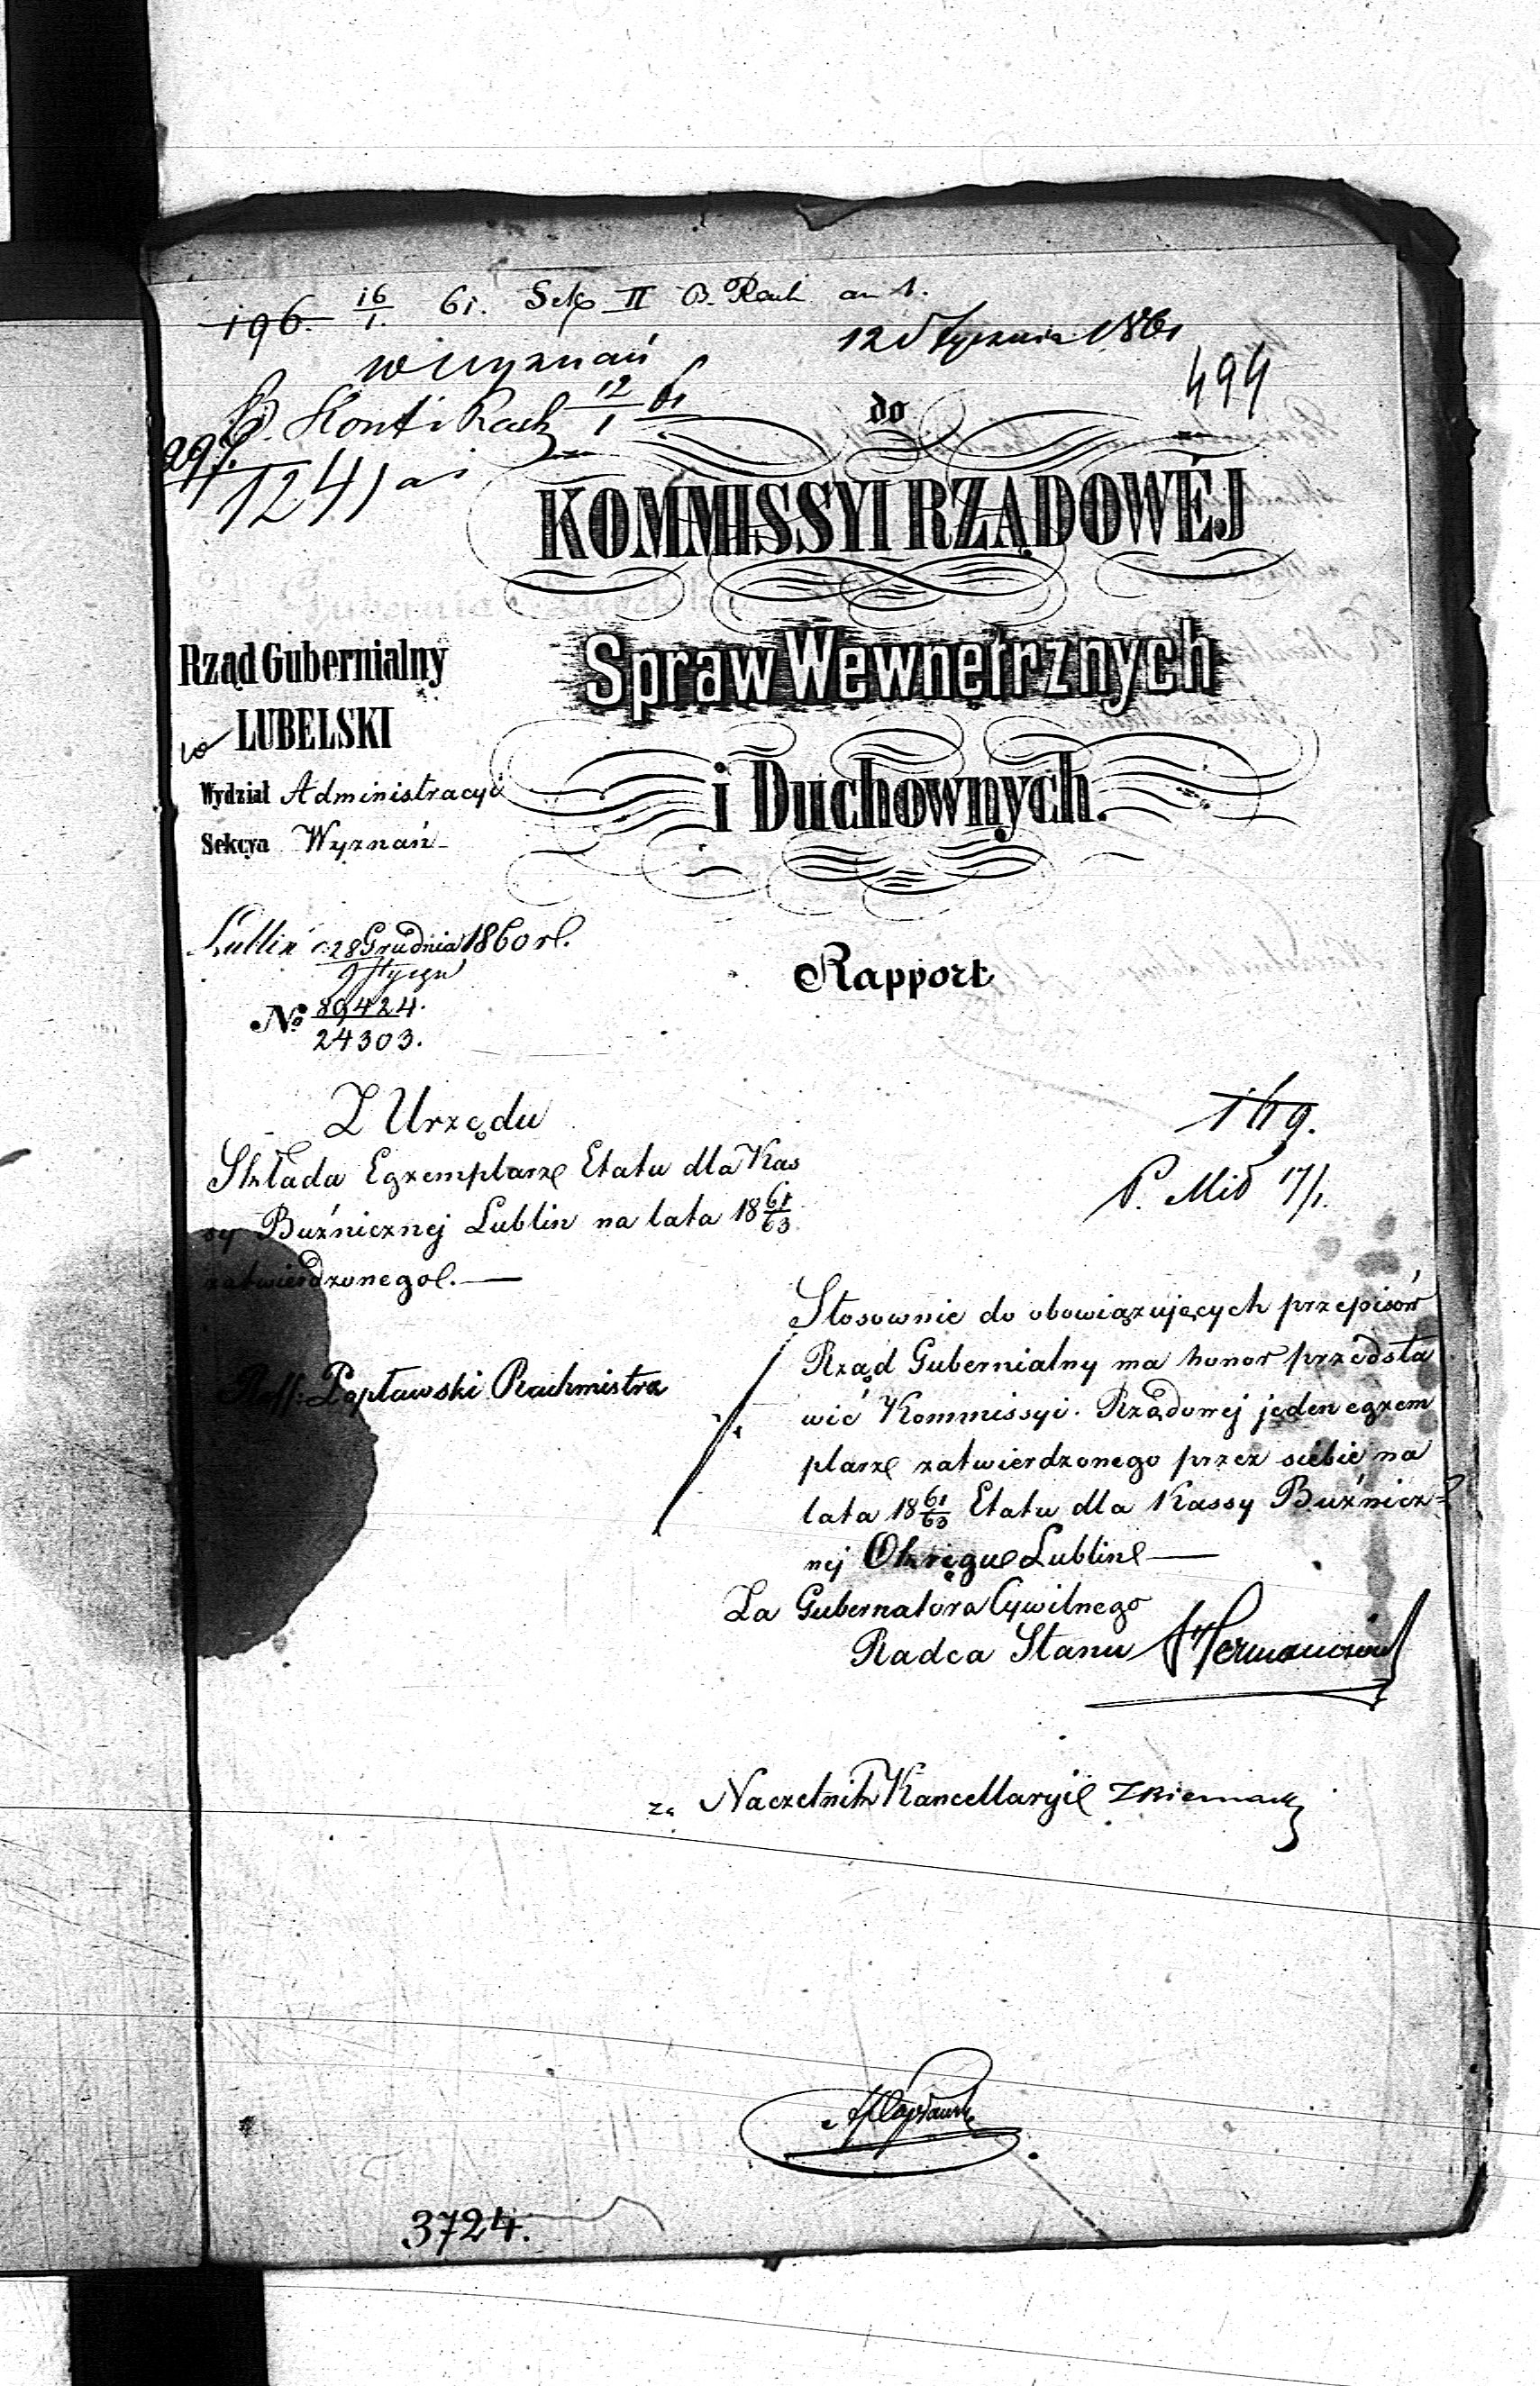 196. 16/1. 61. Sek II B. Rach an 1.
12 Stycznia 1861
Wyznań
494
B. Kont i Rach 12/1 61
1241
do
KOMMISSYI RZĄDOWÉJ
Spraw Wewnętrznych
i Duchownych.
Rząd Gubernialny
LUBELSKI
Wydział Administracyi
Sekcya Wyznań
Lublin 28 Grudnia 1860 r.
9 Styczn
Rapport
№ 89,424.
24303.
Z Urzędu
Składa Egzemplarz Etatu dla Kas
sy Buźnicznej Lublin na lata 18 61/63
zatwierdzonego.—
Popławski Rachmistrz
169.
P. Mić 17/1.
Stosownie do obowiązujących przepisów
Rząd Gubernialny ma honor przedsta
wić Kommissyi Rządowej jeden egzem
plarz zatwierdzonego przez siebie na
lata 18 61/63 Etatu dla Kassy Buźnicz=
nej Okręgu Lublin —
Za Gubernatora Cywilnego
Radca Stanu
za Naczelnik Kancellaryi
3724.